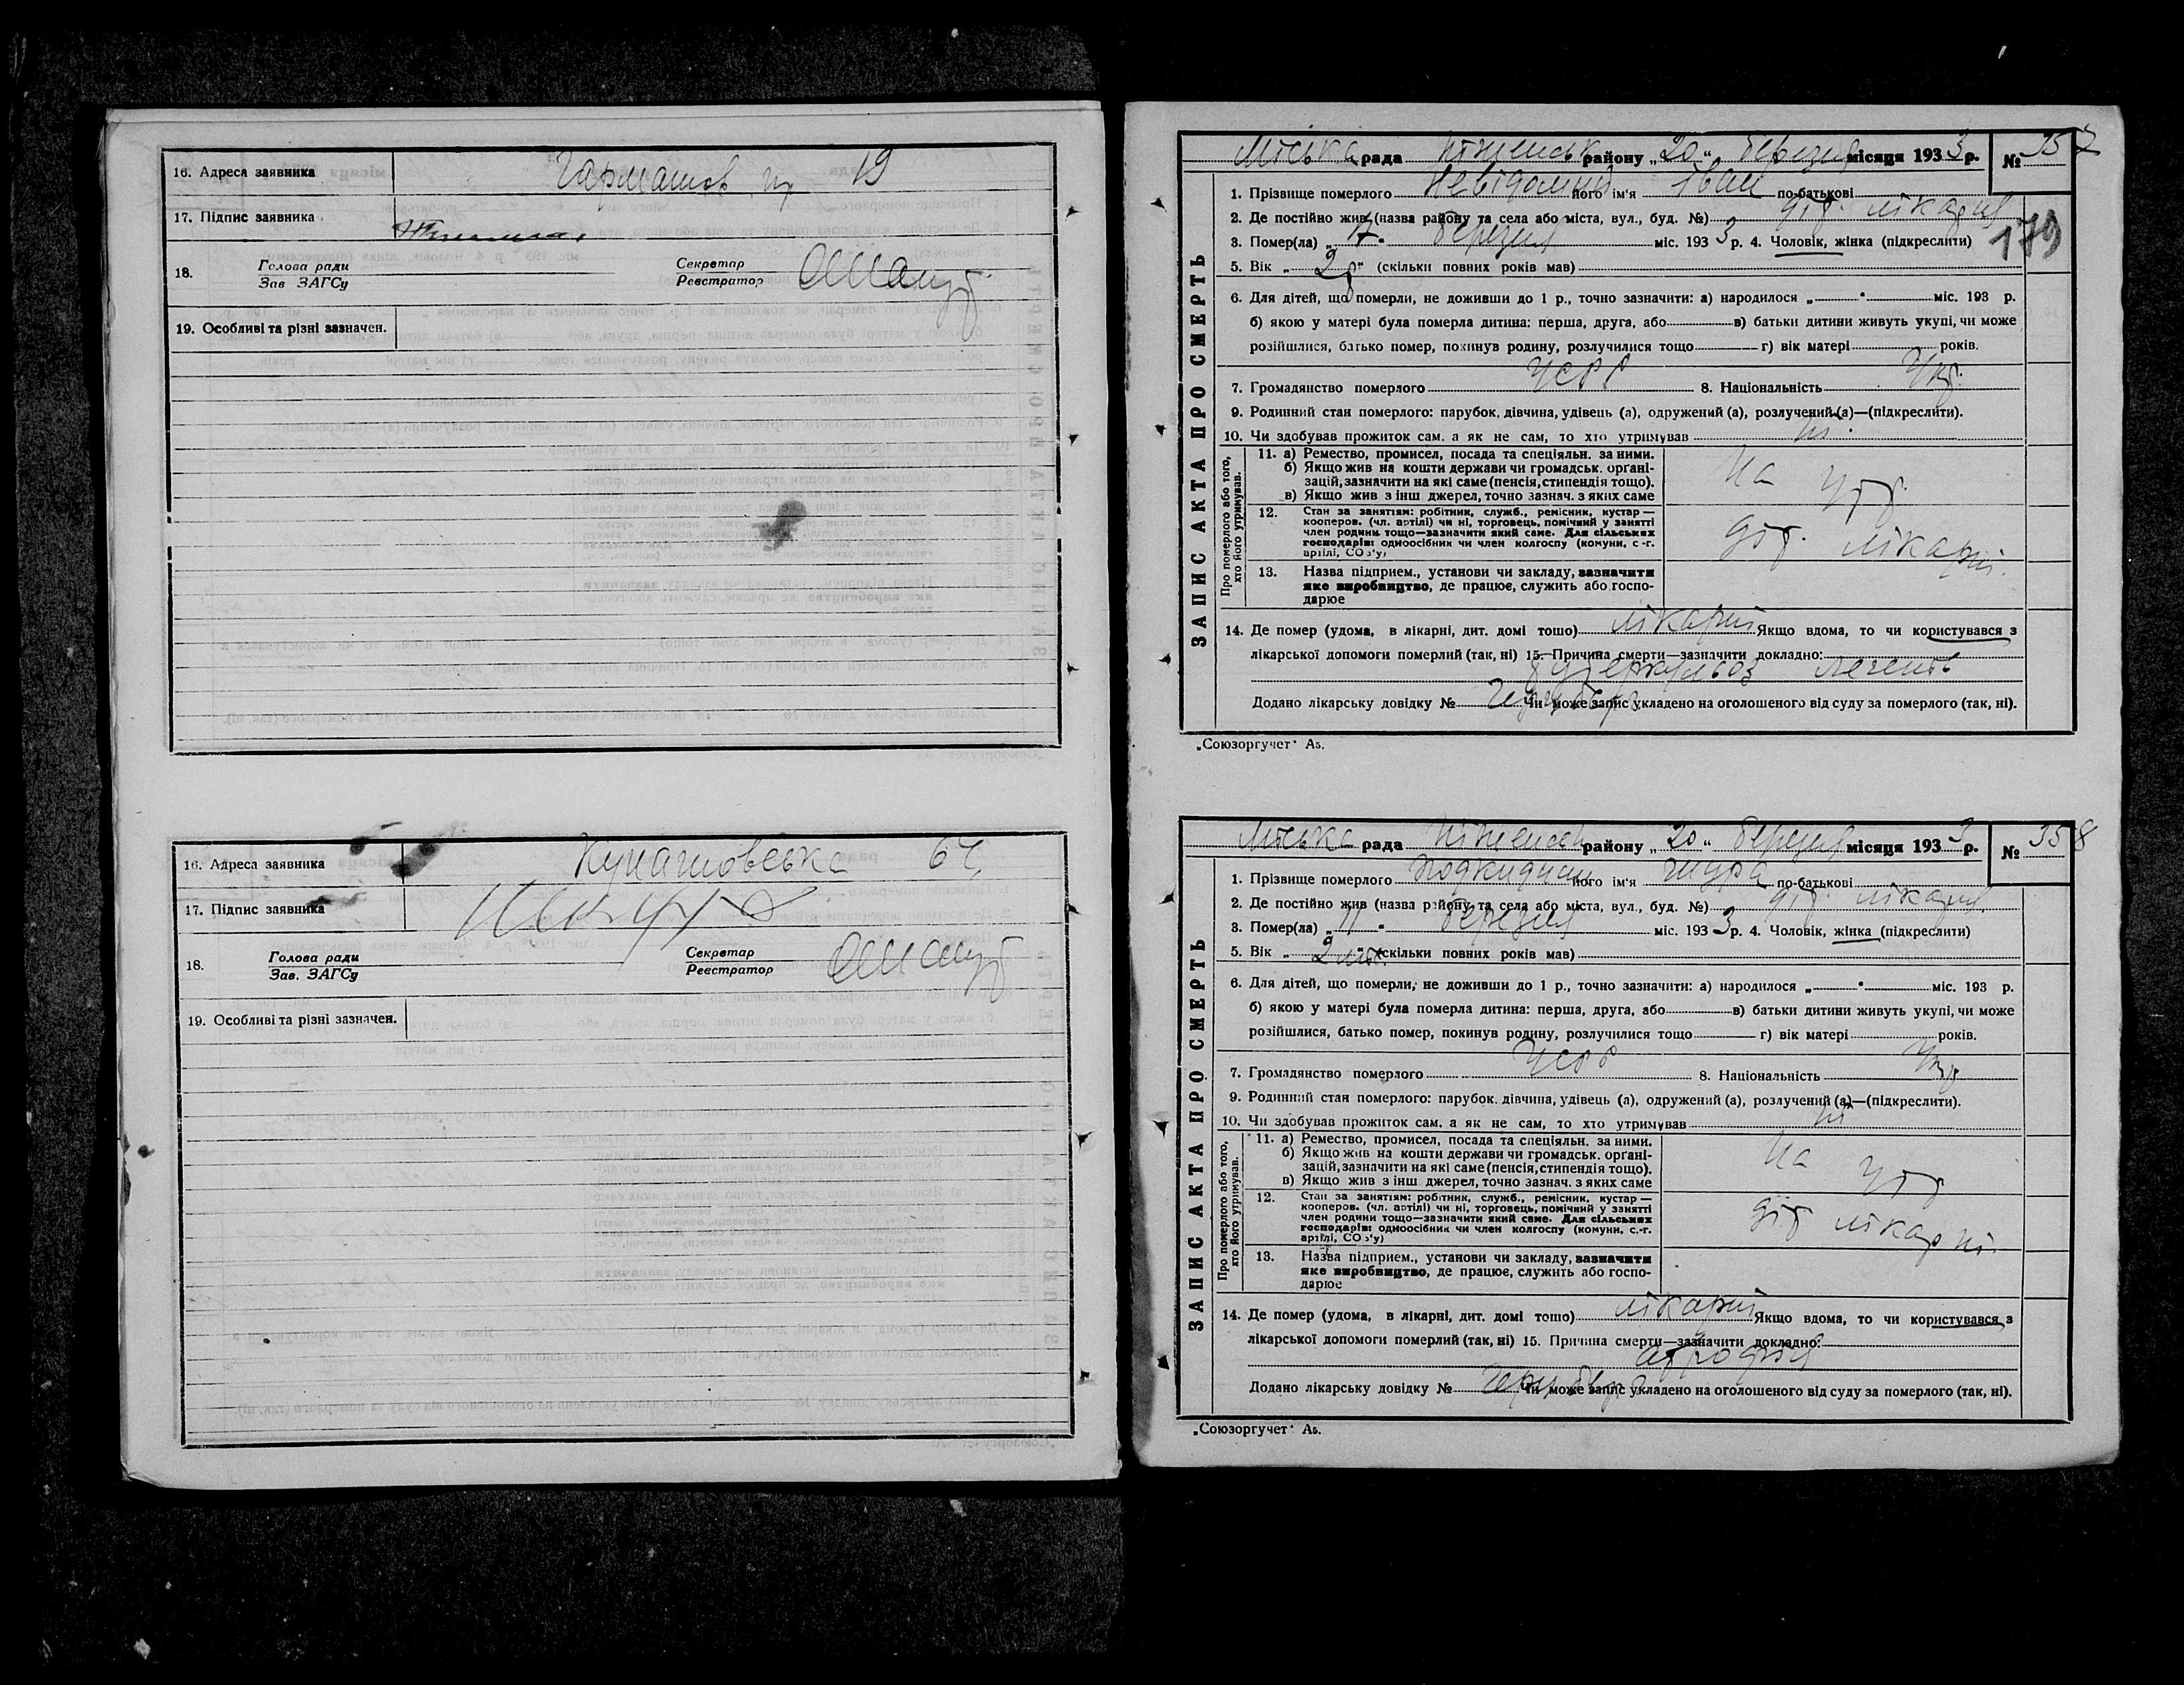 16. Адреса заявника Гармашов пр 19
17. Підпис заявника
18. Голова ради Секретар
Зав ЗАГСу Реєстратор
19. Особливі та різні зазначен.
16. Адреса заявника Кунашовська 64
17. Підпис заявника
18. Голова ради Секретар
Зав. ЗАГСу Реєстратор
19. Особливі та різні зазначен.
ЗАПИС АКТА ПРО СМЕРТЬ
Міська рада Ніженськ району „20“ березня місяця 1933 р. № 357
1. Прізвище померлого Невідомий його ім'я Іван по-батькові
2. Де постійно жив (назва району та села або міста, вул., буд. №) діт. лікарня
179
3. Помер(ла) „17“ березня міс. 1933 р. 4. Чоловік, жінка (підкреслити)
5. Вік „2р“ (скільки повних років мав)
6. Для дітей, що померли, не доживши до 1 р., точно зазначити: а) народилося „ “ міс. 193 р.
б) якою у матері була померла дитина: перша, друга, або в) батьки дитини живуть укупі, чи може
розійшлися, батько помер, покинув родину, розлучилися тощо г) вік матері років.
7. Громадянство померлого УСРР 8. Національність Укр.
9. Родинний стан померлого: парубок, дівчина, удівець (а), одружений (а), розлучений (а)—(підкреслити).
10. Чи здобував прожиток сам, а як не сам, то хто утримував ні.
Про померлого або того, хто його утримував.
11. а) Ремество, промисел, посада та спеціяльн. за ними.
б) Якщо жив на кошти держави чи громадськ. органі-
зацій, зазначити на які саме (пенсія, стипендія тощо).
в) Якщо жив з інш джерел, точно зазнач. з яких саме
На утр.
12. Стан за заняттям: робітник, служб., ремісник, кустар—
кооперов. (чл. артілі) чи ні, торговець, помічний у занятті
член родини тощо—зазначити який саме. Для сільських
господарів: одноосібник чи член колгоспу (комуни, с.-г.
артілі, СОЗ'у)
діт. лікарні.
13. Назва підприєм., установи чи закладу, зазначити
яке виробництво, де працює, служить або госпо-
дарює
14. Де помер (удома, в лікарні, дит. домі тощо) лікарні Якщо вдома, то чи користувався з
лікарської допомоги померлий (так, ні) 15. Причина смерти—зазначити докладно:
туберкульоз легенів
Додано лікарську довідку № Чи може запис укладено на оголошеного від суду за померлого (так, ні).
„Союзоргучет“ А5.
ЗАПИС АКТА ПРО СМЕРТЬ
Міська рада Ніженськ району „20“ березня місяця 1933 р. № 358
1. Прізвище померлого його ім'я Шура по-батькові
2. Де постійно жив (назва району та села або міста, вул., буд. №) діт. лікарня
3. Помер(ла) „11“ березня міс. 1933 р. 4. Чоловік, жінка (підкреслити)
5. Вік „2 (скільки повних років мав)
6. Для дітей, що померли, не доживши до 1 р., точно зазначити: а) народилося „ “ міс. 193 р.
б) якою у матері була померла дитина: перша, друга, або в) батьки дитини живуть укупі, чи може
розійшлися, батько помер, покинув родину, розлучилися тощо г) вік матері років.
7. Громадянство померлого УСРР 8. Національність Укр
9. Родинний стан померлого: парубок, дівчина, удівець (а), одружений (а), розлучений (а)—(підкреслити).
10. Чи здобував прожиток сам, а як не сам, то хто утримував ні
Про померлого або того, хто його утримував.
11. а) Ремество, промисел, посада та спеціяльн. за ними.
б) Якщо жив на кошти держави чи громадськ. органі-
зацій, зазначити на які саме (пенсія, стипендія тощо).
в) Якщо жив з інш джерел, точно зазнач. з яких саме
На утр
12. Стан за заняттям: робітник, служб., ремісник, кустар—
кооперов. (чл. артілі) чи ні, торговець, помічний у занятті
член родини тощо—зазначити який саме. Для сільських
господарів: одноосібник чи член колгоспу (комуни, с.-г.
артілі, СОЗ'у)
діт лікарні.
13. Назва підприєм., установи чи закладу, зазначити
яке виробництво, де працює, служить або госпо-
дарює
14. Де помер (удома, в лікарні, дит. домі тощо) лікарні Якщо вдома, то чи користувався з
лікарської допомоги померлий (так, ні) 15. Причина смерти—зазначити докладно:
атрофія
Додано лікарську довідку № Чи може запис укладено на оголошеного від суду за померлого (так, ні).
„Союзоргучет“ А5.